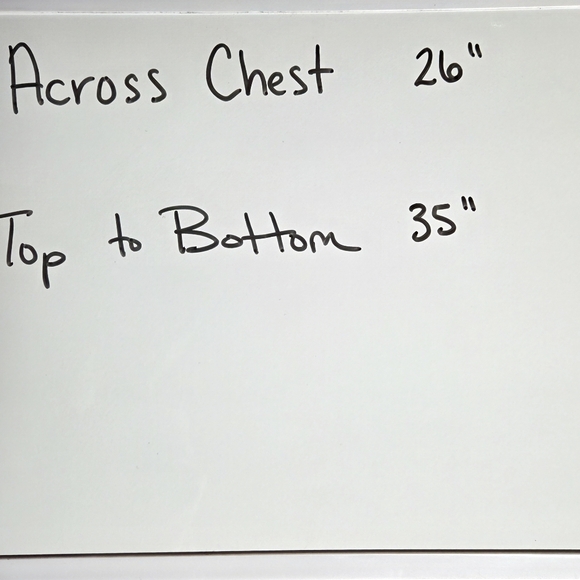 Across Chest 26"
Top to Bottom 35"